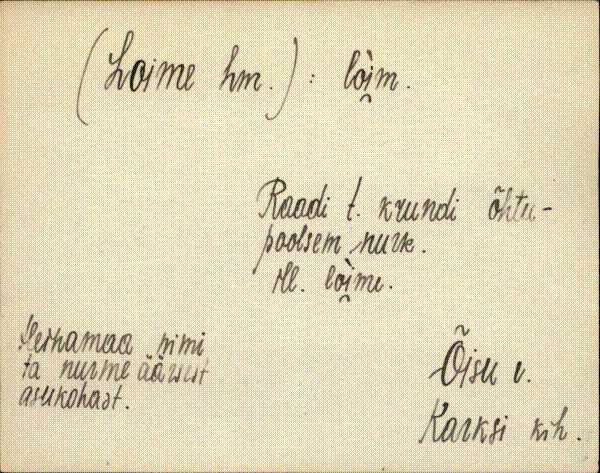 (Loime hm.) : lòi̮m.
Raadi t. krundi õhtu-
poolsem nurk.
ill. lòi̮me.
Heinamaa nimi
ta nurme äärsest
asukohast.
Õisu v.
Karksi kih.